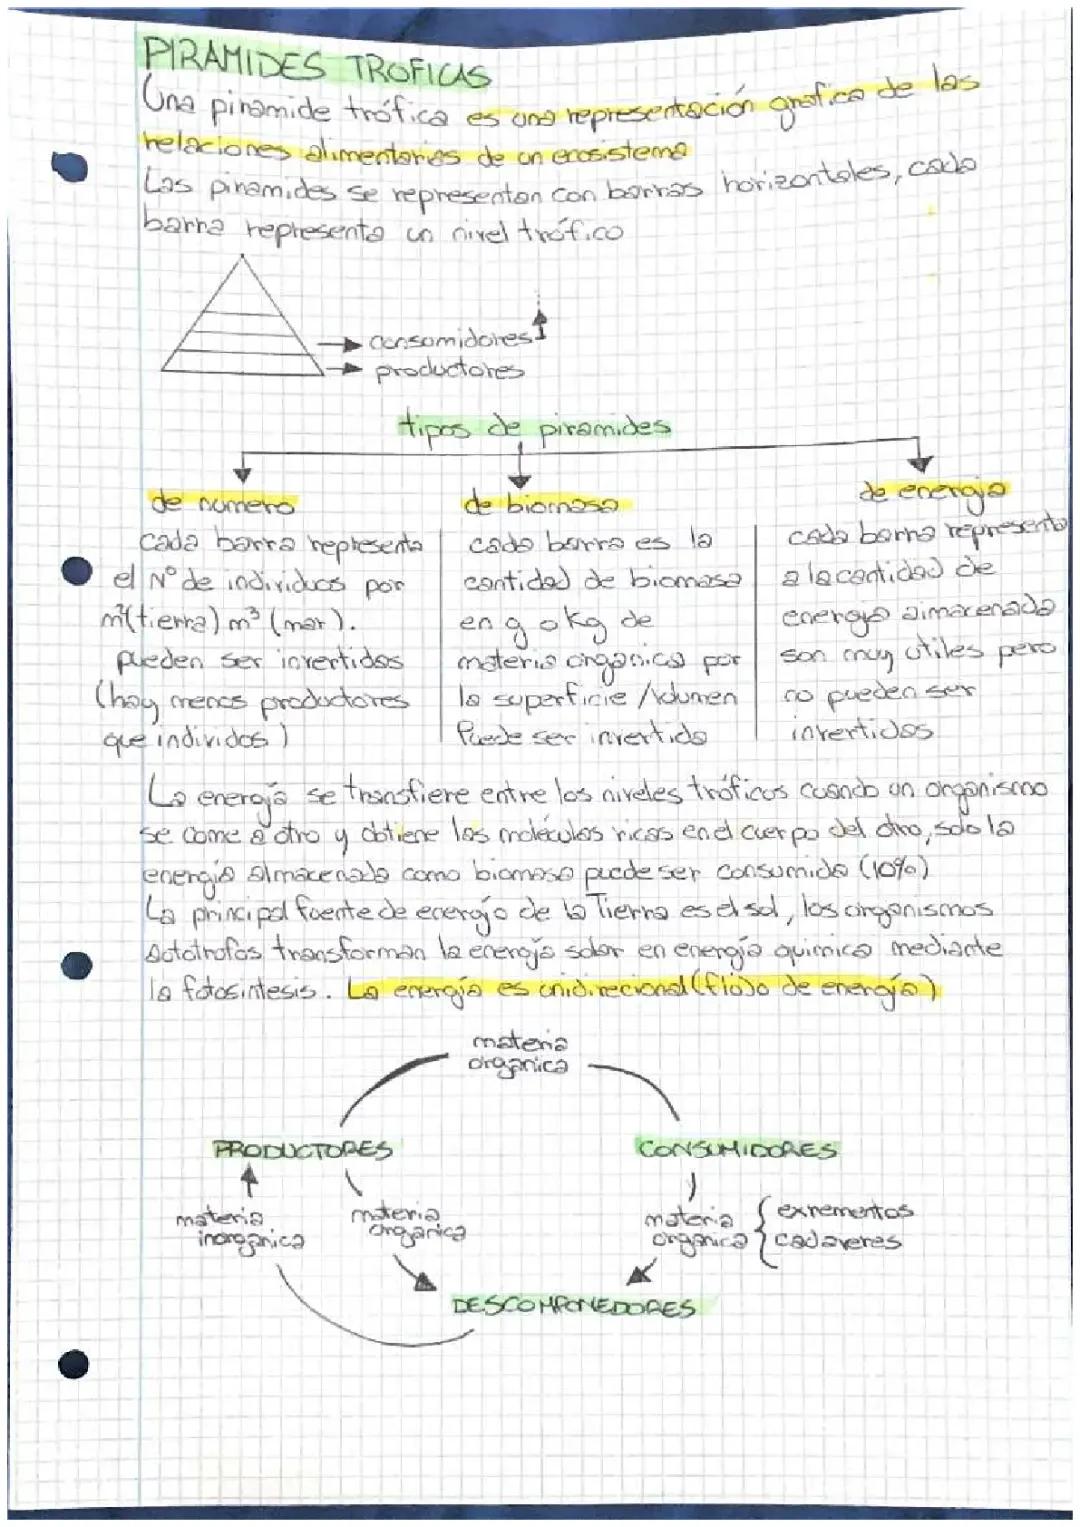 PIRAMIDES TROFICAS
Una piramide trófica es una representación grafica de las
relaciones alimentarias de un ecosistema
Las piramides se representan con barras horizontales, cada
barra representa un nivel trófico
consumidores
productores
tipos de piramides
de numero
cada barra representa
el Nº de individuos por
m²(tierra) m³ (mar).
pueden ser invertidas
(hay menos productores
que individos)
de biomasa
cada barra es la
cantidad de biomasa
en g o kg de
materia organica por
la superficie /volumen
Puede ser invertida
de energia
cada barra representa
a la cantidad de
energia almacenada
son muy utiles pero
no pueden ser
invertidas
La energía se transfiere entre los niveles tróficos cuando un organismo
se come a otro y obtiene las moléculas ricas en el cuerpo del otro, solo la
energía almacenada como biomasa puede ser consumida (10%)
La principal fuente de energía de la Tierra es el sol, los organismos
autotrofos transforman la energía solar en energía quimica mediante
la fotosintesis. La energía es unidirecional (flujo de energía)
materia
organica
PRODUCTORES
CONSUMIDORES
materia
inorganica
materia
organica
materia
organica
exrementos
cadaveres
DESCOMPONEDORES